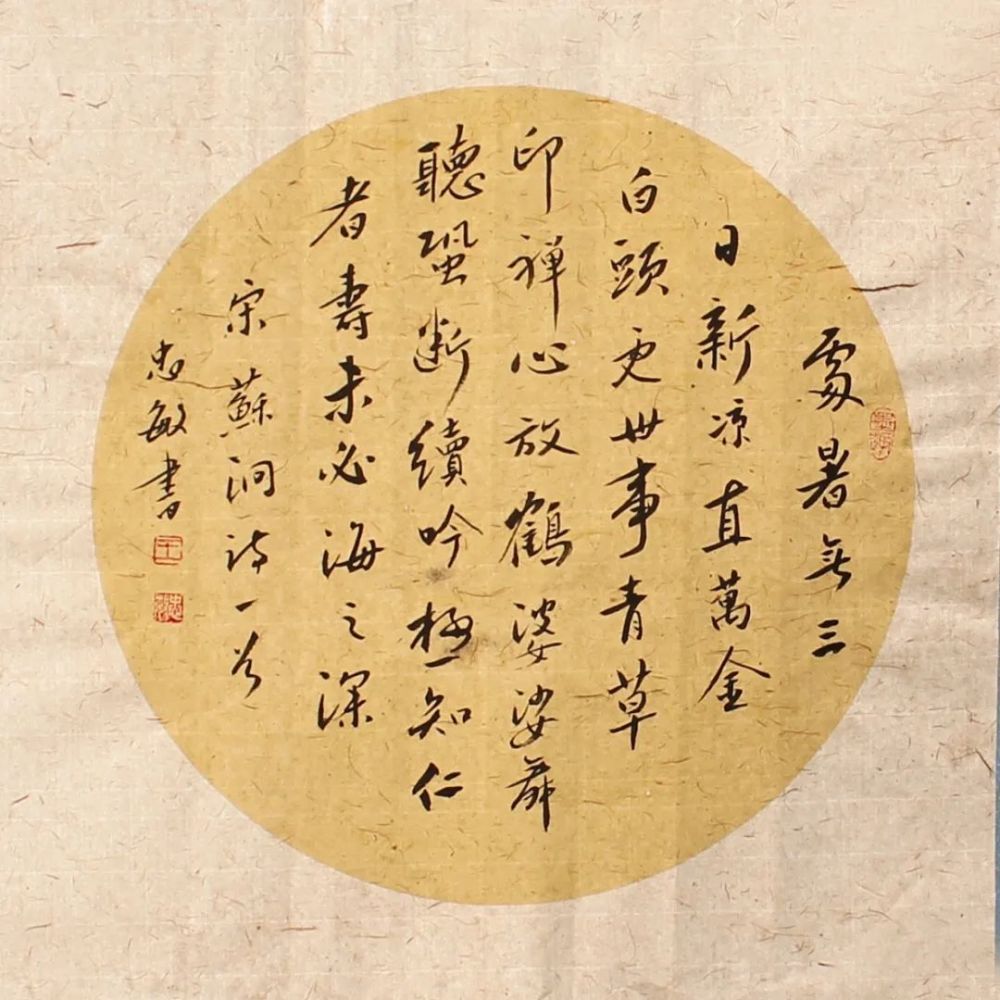 處暑無三
日新凉直萬金
白頭更世事青草
印禅心放鶴婆娑舞
聽蛩斷續吟極知仁
者壽未必海之深
宋蘇泂詩一首
忠敏書
王